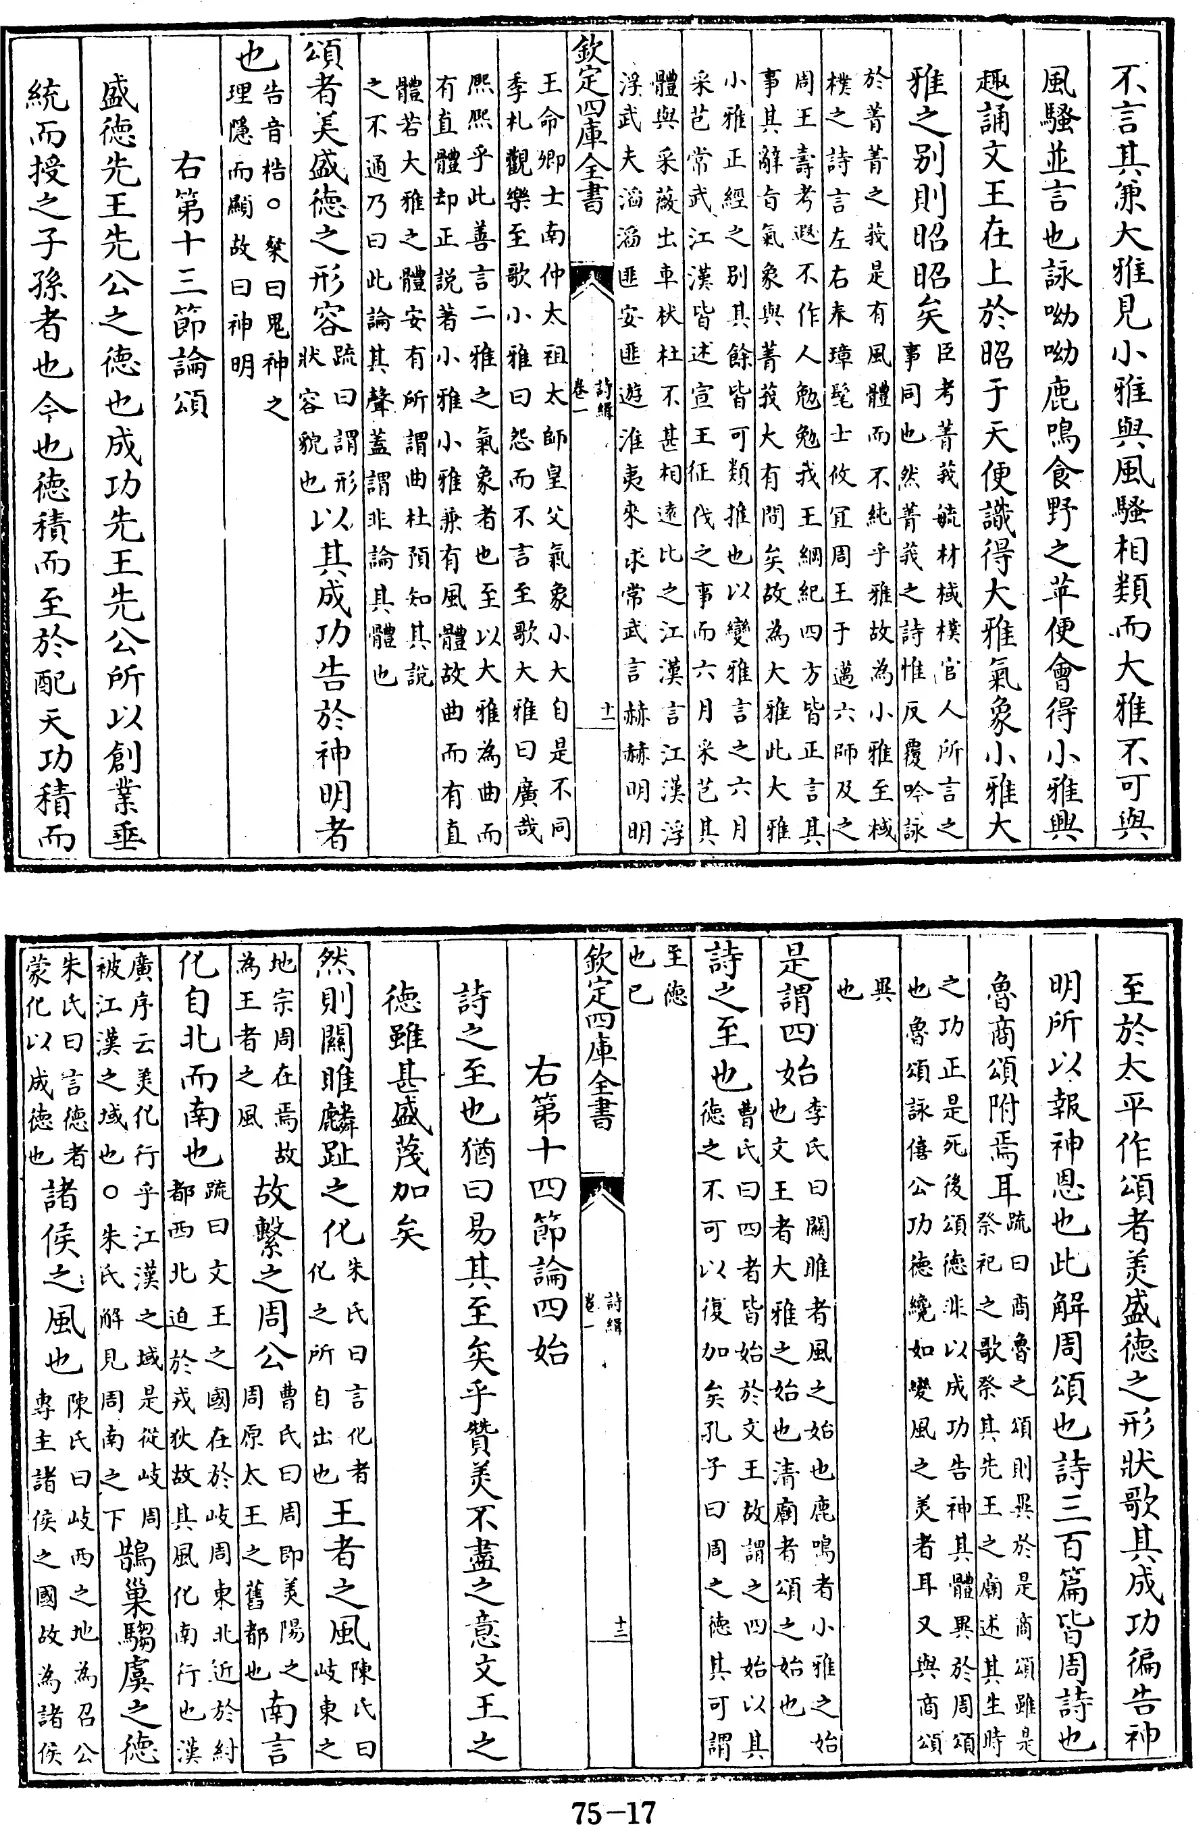 不言其兼大雅見小雅與風騷相類而大雅不可與
風騷並言也詠呦呦鹿鳴食野之苹便會得小雅興
趣誦文王在上於昭于天便識得大雅氣象小雅大
雅之别則昭昭矣
臣考菁莪毓材棫樸官人所言之
事同也然菁莪之詩惟反覆吟詠
於菁菁之莪是有風體而不純乎雅故為小雅至棫
樸之詩言左右奉璋髦士攸宜周王于邁六師及之
周王壽考遐不作人勉勉我王綱紀四方皆正言其
事其辭旨氣象與菁莪大有間矣故為大雅此大雅
小雅正經之别其餘皆可類推也以變雅言之六月
采芑常武江漢皆述宣王征伐之事而六月采芑其
體與采薇出車杕杜不甚相遠比之江漢言江漢浮
浮武夫滔滔匪安匪遊淮夷來求常武言赫赫明明
欽定四庫全書
詩緝
卷一
十一
王命卿士南仲太祖太師皇父氣象小大自是不同
季札觀樂至歌小雅曰怨而不言至歌大雅曰廣哉
熙熙乎此善言二雅之氣象者也至以大雅為曲而
有直體却正説著小雅小雅兼有風體故曲而有直
體若大雅之體安有所謂曲杜預知其説
之不通乃曰此論其聲蓋謂非論其體也
頌者美盛德之形容
疏曰謂形
狀容貌也
以其成功告於神明者
也
告音梏○粲曰鬼神之
理隱而顯故曰神明
右第十三節論頌
盛德先王先公之德也成功先王先公所以創業垂
統而授之子孫者也今也德積而至於配天功積而
至於太平作頌者美盛德之形狀歌其成功徧告神
明所以報神恩也此解周頌也詩三百篇皆周詩也
魯商頌附焉耳
疏曰商魯之頌則異於是商頌雖是
祭祀之歌祭其先王之廟述其生時
之功正是死後頌德非以成功告神其體異於周頌
也魯頌詠僖公功德纔如變風之美者耳又與商頌
異
也
是謂四始
李氏曰關雎者風之始也鹿鳴者小雅之始
也文王者大雅之始也清廟者頌之始也
詩之至也
曹氏曰四者皆始於文王故謂之四始以其
德之不可以復加矣孔子曰周之德其可謂
至德
也已
欽定四庫全書
詩緝
卷一
十二
右第十四節論四始
詩之至也猶曰易其至矣乎贊美不盡之意文王之
德雖甚盛蔑加矣
然則關雎麟趾之化
朱氏曰言化者
化之所自出也
王者之風
陳氏曰
岐東之
地宗周在焉故
為王者之風
故繫之周公
曹氏曰周即美陽之
周原太王之舊都也
南言
化自北而南也
疏曰文王之國在於岐周東北近於紂
都西北迫於戎狄故其風化南行也漢
廣序云美化行乎江漢之域是從岐周
被江漢之域也○朱氏解見周南之下
鵲巢騶虞之德
朱氏曰言德者
蒙化以成德也
諸侯之風也
陳氏曰岐西之地為召公
專主諸侯之國故為諸侯
75-17